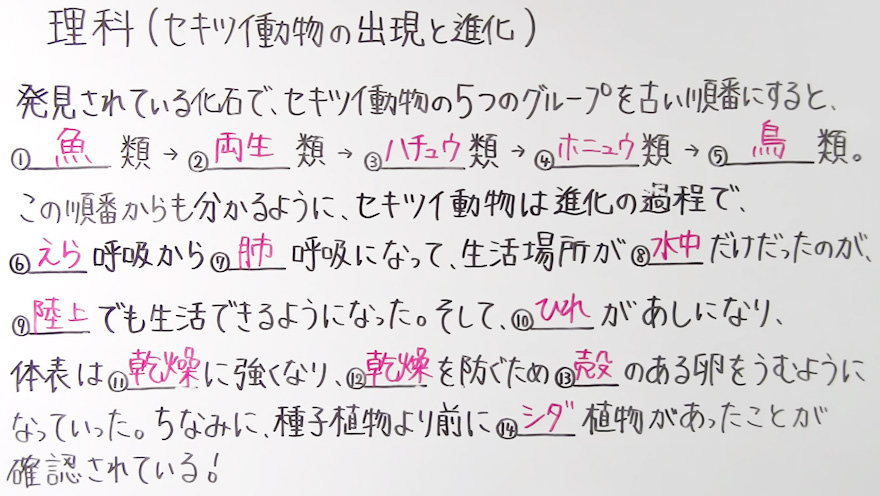 理科(セキツイ動物の出現と進化)
発見されている化石で、セキツイ動物の5つのグループを古い順番にすると、
①魚類→②両生類→③ハチュウ類→④ホニュウ類→⑤鳥類。
この順番からも分かるように、セキツイ動物は進化の過程で、
⑥えら呼吸から⑦肺呼吸になって、生活場所が⑧水中だけだったのが、
⑨陸上でも生活できるようになった。そして、⑩ひれがあしになり、
体表は⑪乾燥に強くなり、⑫乾燥を防ぐため⑬殻のある卵をうむように
なっていった。ちなみに、種子植物より前に⑭シダ植物があったことが
確認されている!